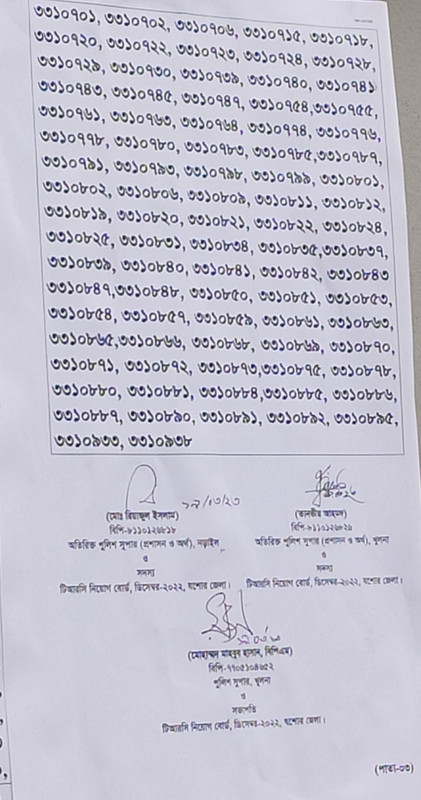 ৩৩১০৭০১, ৩৩১০৭০২, ৩৩১০৭০৬, ৩৩১০৭১৫, ৩৩১০৭১৮,
৩৩১০৭২০, ৩৩১০৭২২, ৩৩১০৭২৩, ৩৩১০৭২৪, ৩৩১০৭২৮,
৩৩১০৭২৯, ৩৩১০৭৩০, ৩৩১০৭৩৯, ৩৩১০৭৪০, ৩৩১০৭৪১
৩৩১০৭৪৩, ৩৩১০৭৪৫, ৩৩১০৭৪৭, ৩৩১০৭৫৪,৩৩১০৭৫৫,
৩৩১০৭৬১, ৩৩১০৭৬৩, ৩৩১০৭৬৪, ৩৩১০৭৭৪, ৩৩১০৭৭৬,
৩৩১০৭৭৮, ৩৩১০৭৮০, ৩৩১০৭৮৩, ৩৩১০৭৮৫,৩৩১০৭৮৭,
৩৩১০৭৯১, ৩৩১০৭৯৩, ৩৩১০৭৯৮, ৩৩১০৭৯৯, ৩৩১০৮০১,
৩৩১০৮০২, ৩৩১০৮০৬, ৩৩১০৮০৯, ৩৩১০৮১১, ৩৩১০৮১২,
৩৩১০৮১৯, ৩৩১০৮২০, ৩৩১০৮২১, ৩৩১০৮২২, ৩৩১০৮২৪,
৩৩১০৮২৫, ৩৩১০৮৩১, ৩৩১০৮৩৪, ৩৩১০৮৩৫,৩৩১০৮৩৭,
৩৩১০৮৩৯, ৩৩১০৮৪০, ৩৩১০৮৪১, ৩৩১০৮৪২, ৩৩১০৮৪৩
৩৩১০৮৪৭,৩৩১০৮৪৮, ৩৩১০৮৫০, ৩৩১০৮৫১, ৩৩১০৮৫৩,
৩৩১০৮৫৪, ৩৩১০৮৫৭, ৩৩১০৮৫৯, ৩৩১০৮৬১, ৩৩১০৮৬৩,
৩৩১০৮৬৫,৩৩১০৮৬৬, ৩৩১০৮৬৮, ৩৩১০৮৬৯, ৩৩১০৮৭০,
৩৩১০৮৭১, ৩৩১০৮৭২, ৩৩১০৮৭৩,৩৩১০৮৭৫, ৩৩১০৮৭৮,
৩৩১০৮৮০, ৩৩১০৮৮১, ৩৩১০৮৮৪,৩৩১০৮৮৫, ৩৩১০৮৮৬,
৩৩১০৮৮৭, ৩৩১০৮৯০, ৩৩১০৮৯১, ৩৩১০৮৯২, ৩৩১০৮৯৫,
৩৩১০৯৩৩, ৩৩১০৯৩৮
(মোঃ রিয়াজুল ইসলাম)
বিপি-৮১১০১২৬৮১৮
অতিরিক্ত পুলিশ সুপার (প্রশাসন ও অর্থ), নড়াইল
ও
সদস্য
টিআরসি নিয়োগ বোর্ড, ডিসেম্বর-২০২২, যশোর জেলা।
(তানভীর আহমদ)
বিপি-৮১১০১২৬৮২৮
অতিরিক্ত পুলিশ সুপার (প্রশাসন ও অর্থ), খুলনা
ও
সদস্য
টিআরসি নিয়োগ বোর্ড, ডিসেম্বর-২০২২, যশোর জেলা।
(মোহাম্মদ মাহবুব হাসান, বিপিএম)
বিপি-৭৭০৫১০৪৬৫২
পুলিশ সুপার, খুলনা
ও
সভাপতি
টিআরসি নিয়োগ বোর্ড, ডিসেম্বর-২০২২, যশোর জেলা।
(পাতা-০৩)